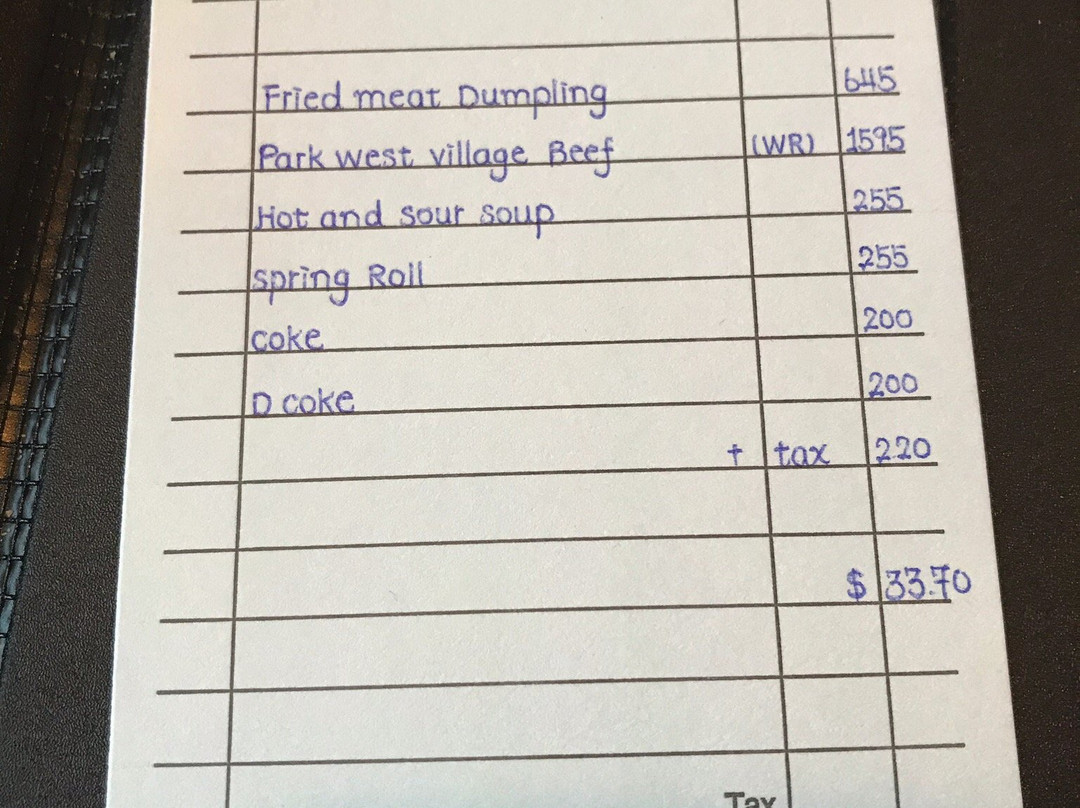 Fried meat Dumpling 645
Park west village Beef (WR) 1595
Hot and sour soup 255
spring Roll 255
coke 200
D coke 200
+ tax 220
$ 33.70
Tax